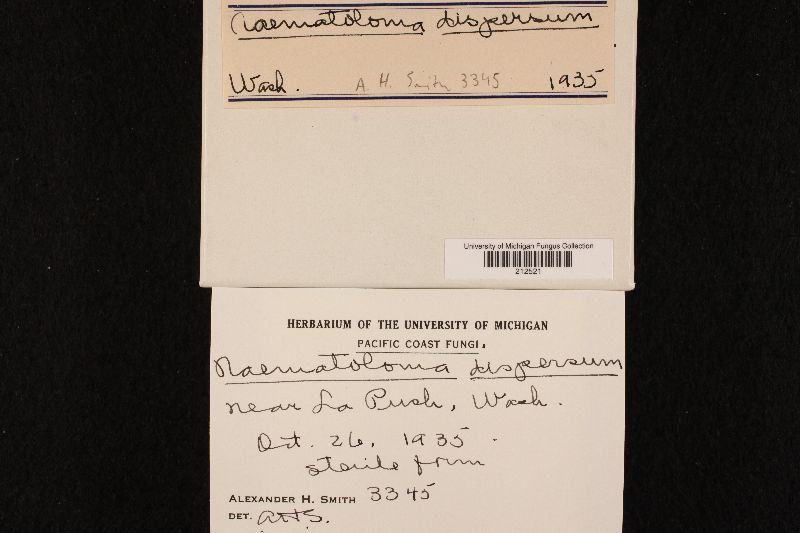 Naematoloma dispersum
Wash. A. H. Smith 3345 1935
University of Michigan Fungus Collection
212521
HERBARIUM OF THE UNIVERSITY OF MICHIGAN
PACIFIC COAST FUNGI.
Naematoloma dispersum
near La Push, Wash.
Oct. 26, 1935.
sterile form
ALEXANDER H. SMITH 3345
DET. AHS.